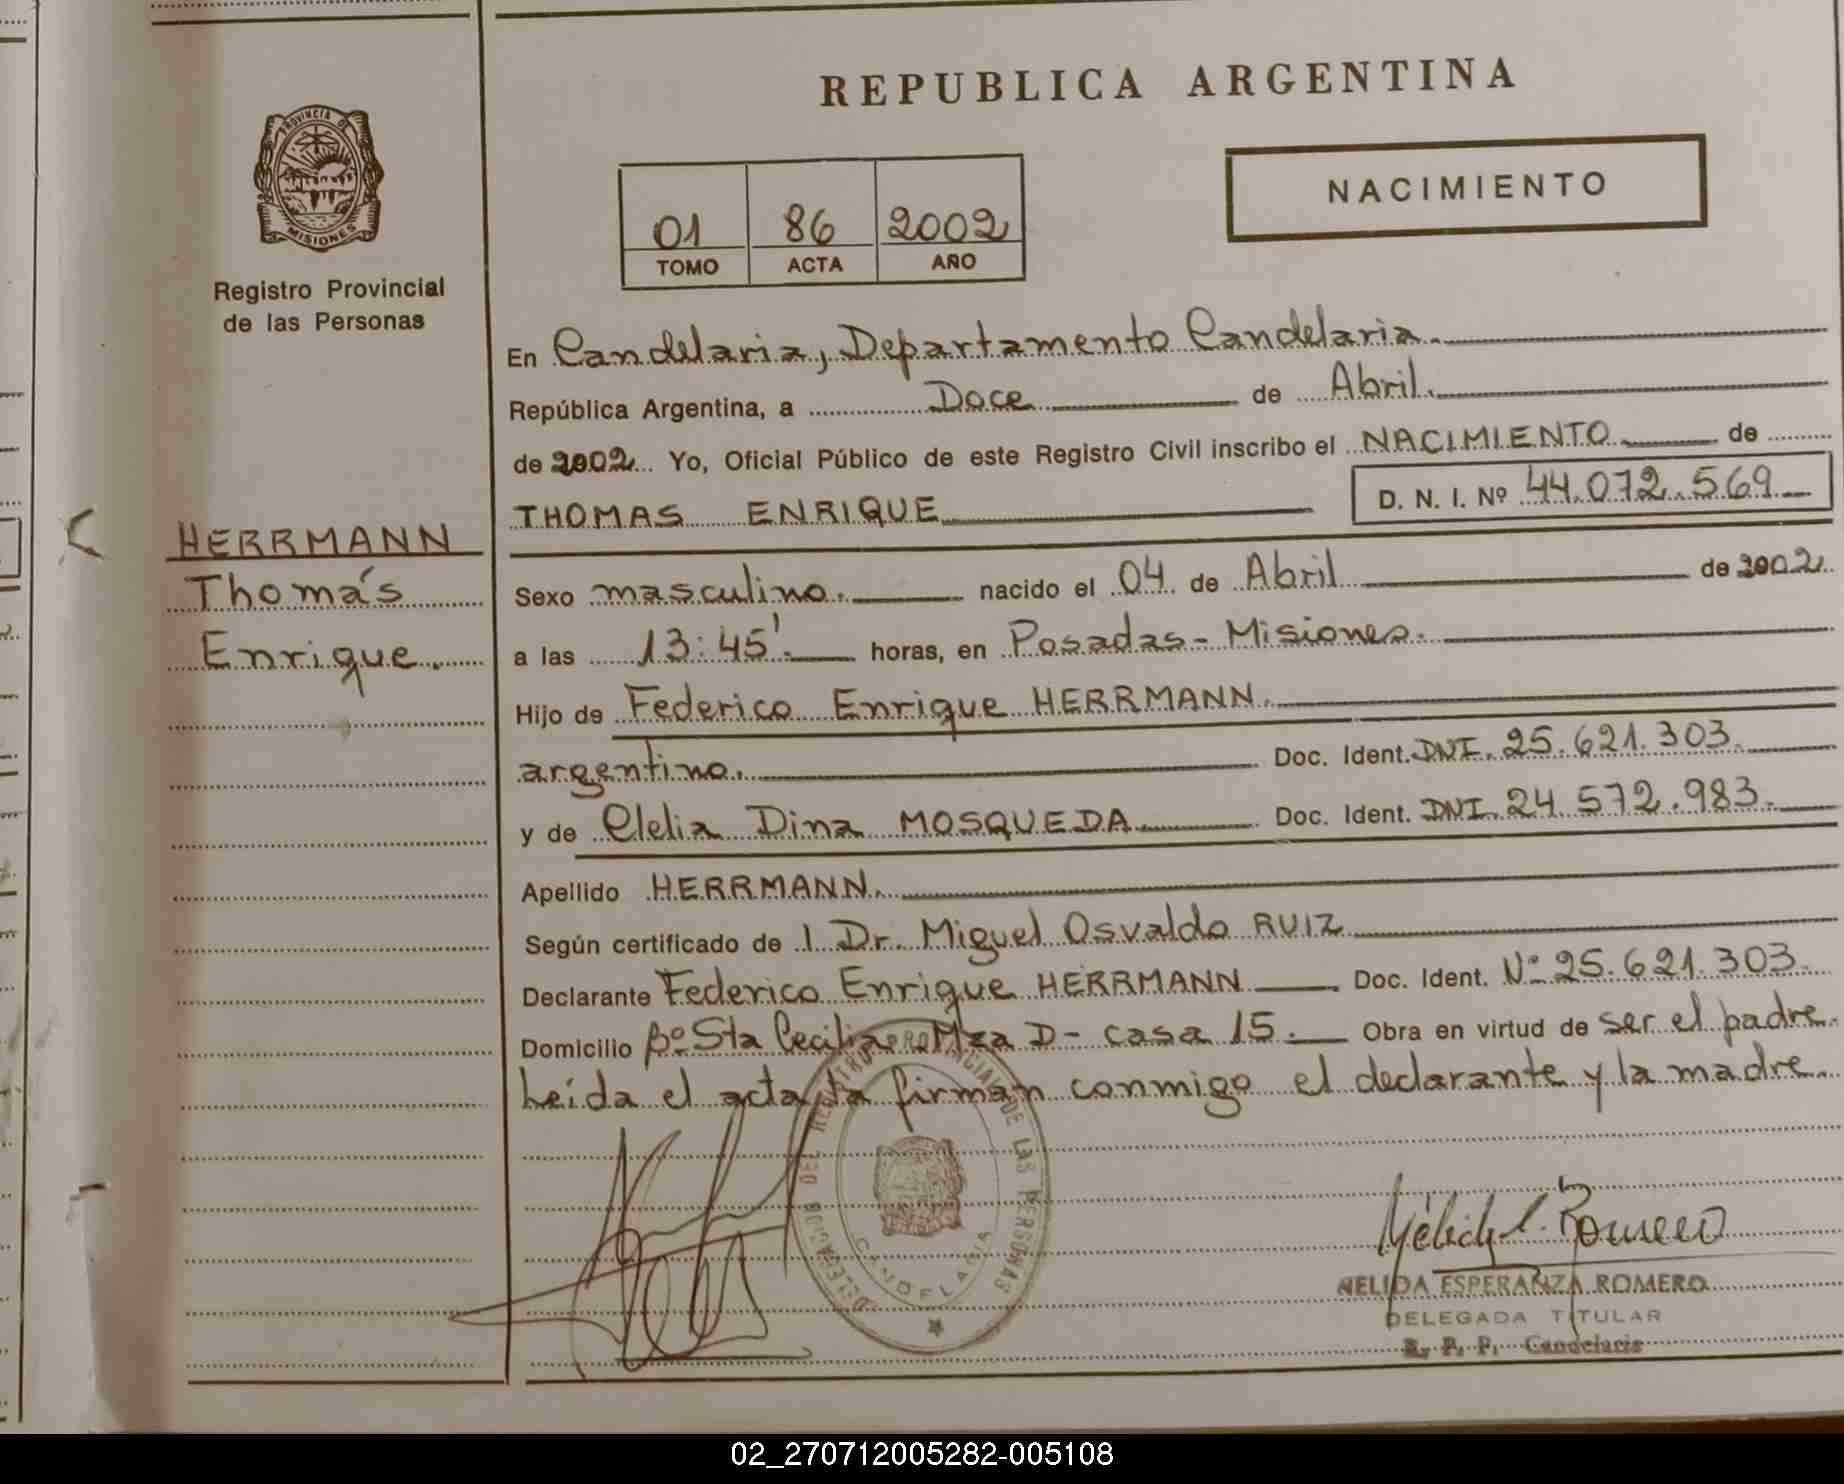 REPUBLICA ARGENTINA
PROVINCIA DE
MISIONES
Registro Provincial
de las Personas
01 86 2002
TOMO ACTA AÑO
NACIMIENTO
En Candelaria, Departamento Candelaria.
República Argentina, a Doce de Abril.
de 2002 Yo, Oficial Público de este Registro Civil inscribo el NACIMIENTO de
THOMAS ENRIQUE D. N. I. Nº 44.072.569
HERRMANN
Thomás
Enrique.
Sexo masculino. nacido el 04 de Abril de 2002
a las 13:45'. horas, en Posadas - Misiones.
Hijo de Federico Enrique HERRMANN.
argentino. Doc. Ident. DNI. 25.621.303.
y de Clelia Dina MOSQUEDA Doc. Ident. DNI. 24.572.983.
Apellido HERRMANN.
Según certificado de l Dr. Miguel Osvaldo RUIZ
Declarante Federico Enrique HERRMANN Doc. Ident. Nº 25.621.303.
Domicilio Bº Sta Cecilia Mza D - casa 15. Obra en virtud de ser el padre.
Leída el acta, la firman conmigo el declarante y la madre.
DELEGACION DE REGISTRO PROVINCIAL DE LAS PERSONAS
CANDELARIA
Nélida E. Romero
NELIDA ESPERANZA ROMERO
DELEGADA TITULAR
R. P. P. Candelaria
02_270712005282-005108